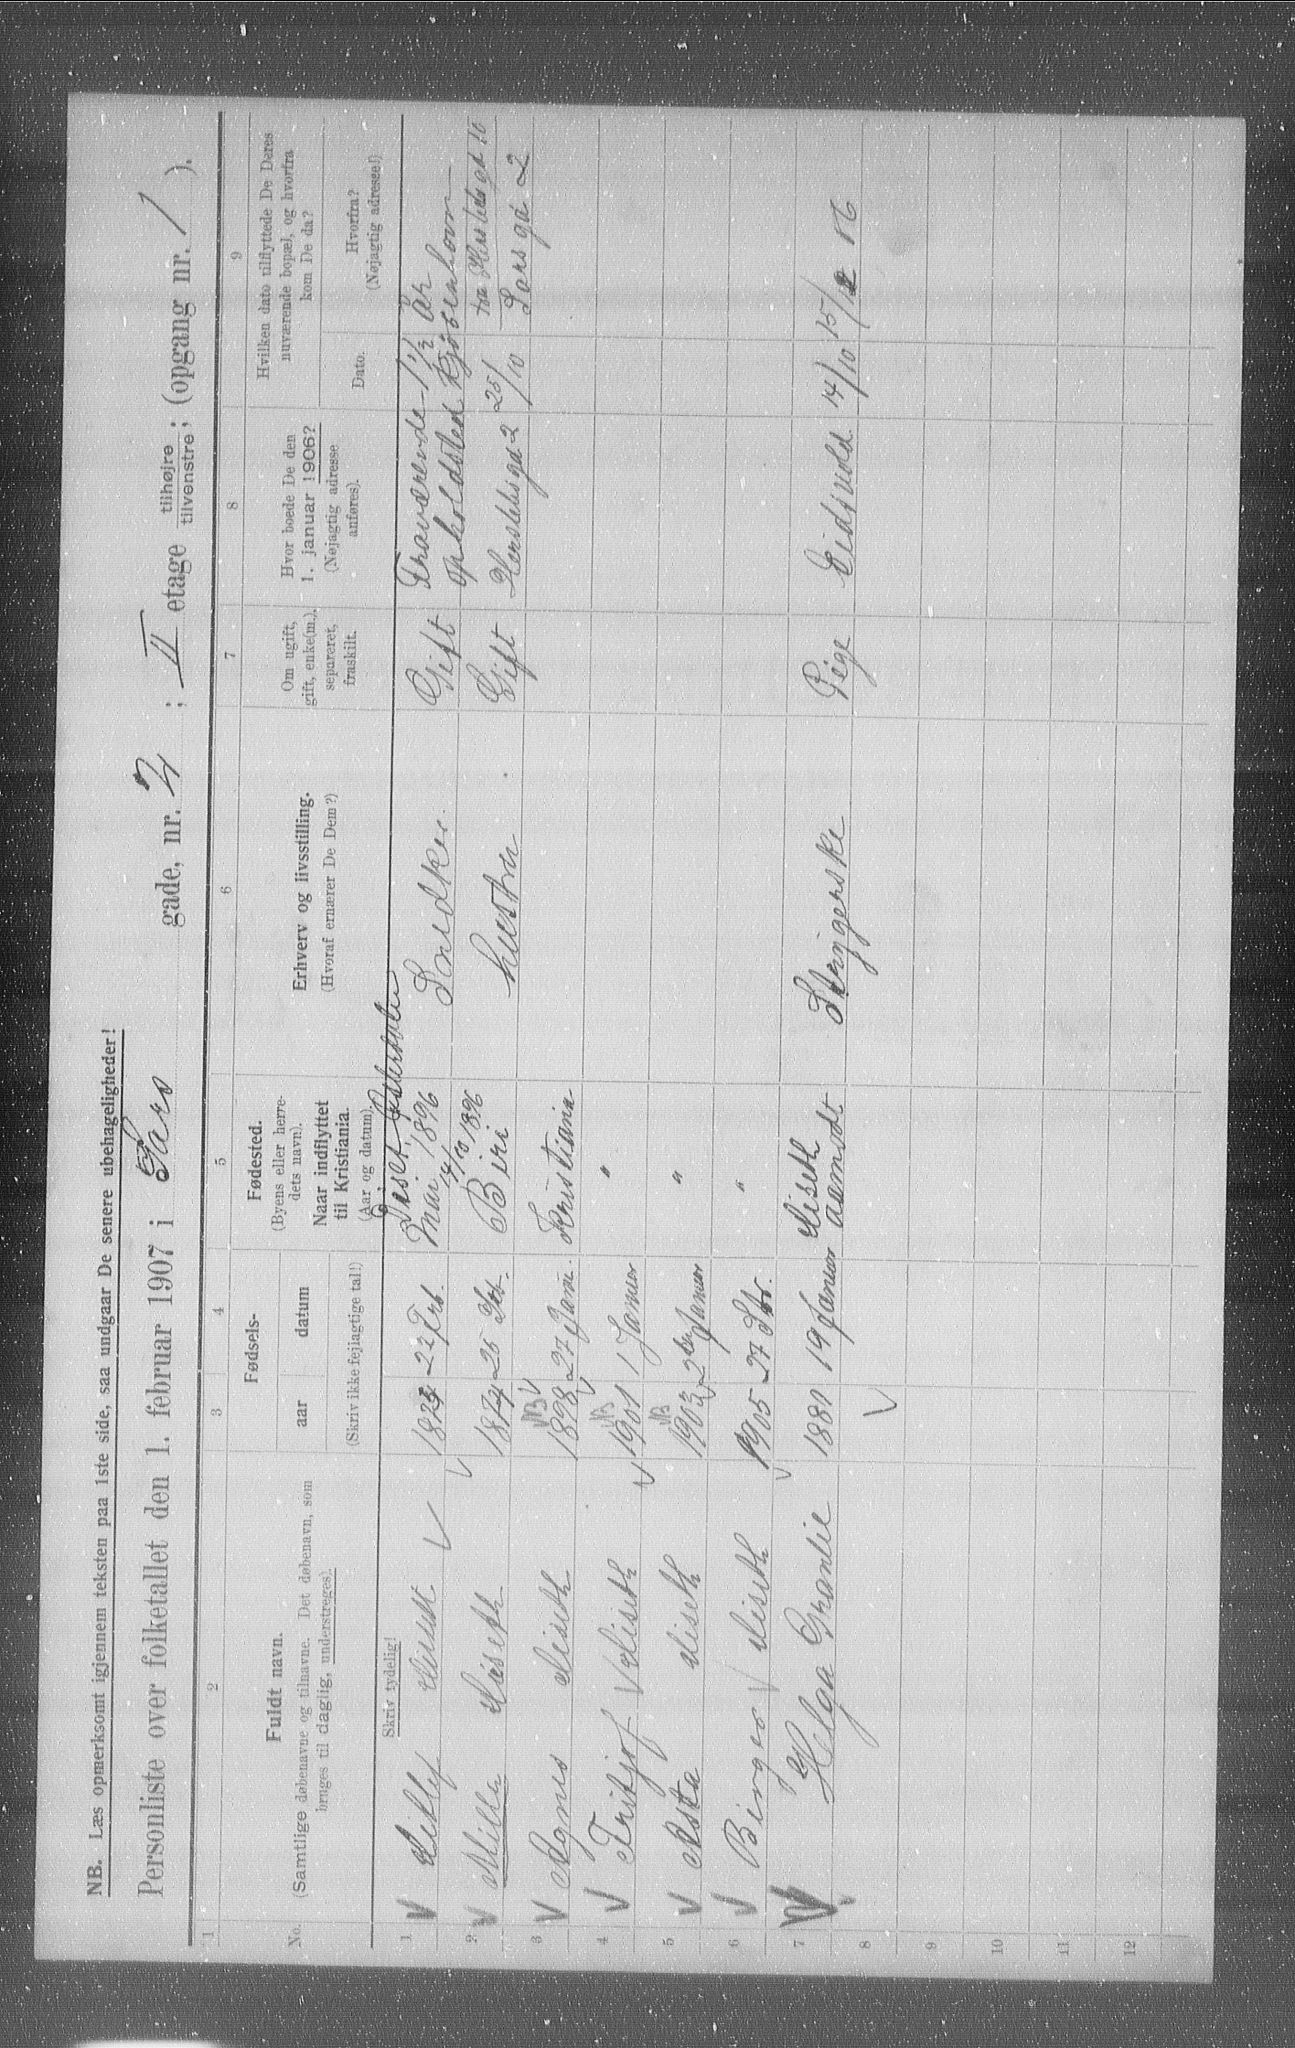 NB. Læs opmerksomt igjennem teksten paa 1ste side, saa undgaar De senere ubehageligheder!
Personliste over folketallet den 1. februar 1907 i Lars gade, nr. 2 ; II etage tilhøjre tilvenstre; (opgang nr. 1 ).
1 2 3 4 5 6 7 8 9
No.
Fuldt navn.
(Samtlige døbenavne og tilnavne. Det døbenavn, som
bruges til daglig, understreges).
Fødsels-
aar datum
(Skriv ikke fejlagtige tal!)
Fødested.
(Byens eller herre-
dets navn).
Naar indflyttet
til Kristiania.
(Aar og datum).
Erhverv og livsstilling.
(Hvoraf ernærer De Dem?)
Om ugift,
gift, enke(m.),
separeret,
fraskilt.
Hvor boede De den
1. januar 1906?
(Nøjagtig adresse
anføres).
Hvilken dato tilflyttede De Deres
nuværende bopæl, og hvorfra
kom De da?
Dato.
Hvorfra?
(Nøjagtig adresse!)
Skriv tydelig!
1 Detlef 22 Feb. Mai 1896 Gift Fraværende 1 1/2 År
opholdsted Kjøbenhavn
2 Milla Miseth 1874 25 Biri hustru Gift Herslebsgd 2 25/10 fra Herslebsgd 10
Lars gd 2
3 Agnes Miseth 1898 27 Jan. Kristiania
4 Fritjof Miseth 1901 1 Januar "
5 Asta Miseth 1903 Januar "
6 Birger Miseth 1905 27 "
7 Helga Granlie 1881 19 Januar Strygerske Pige Eidsvold 14/10
8
9
10
11
12